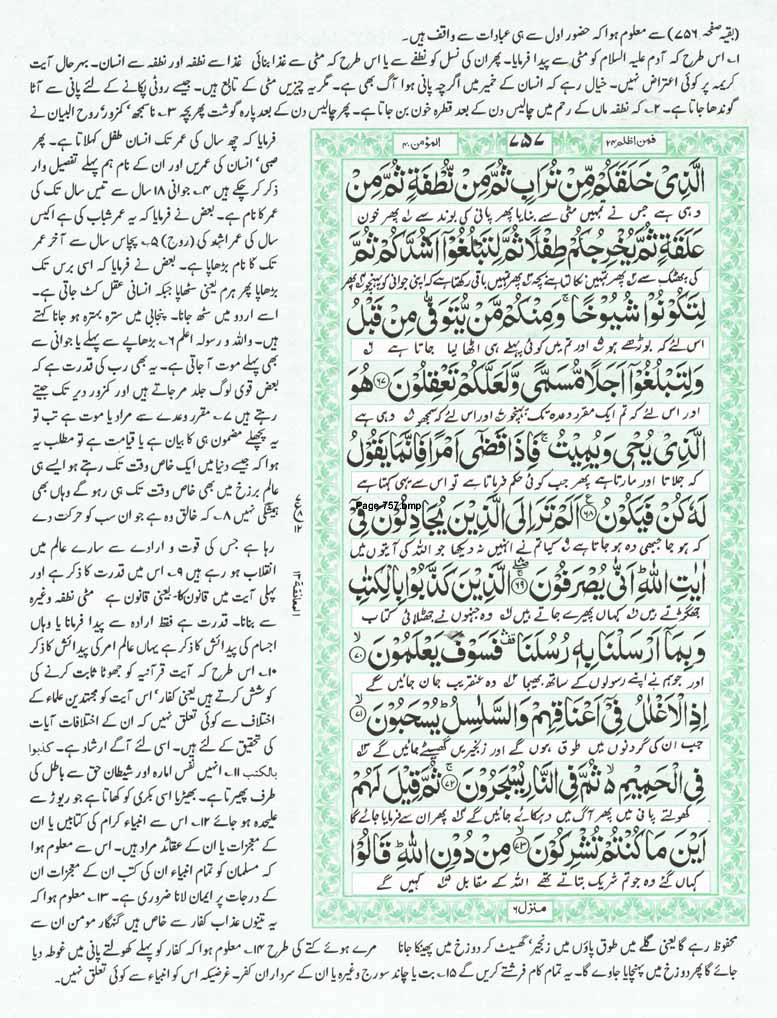 (بقیہ صفحہ ۷۵۶) سے معلوم ہوا کہ حضور اول سے ہی عبادات سے واقف ہیں۔
۱۔ اس طرح کہ آدم علیہ السلام کو مٹی سے پیدا فرمایا۔ پھر ان کی نسل کو نطفے سے یا اس طرح کہ مٹی سے غذا بنائی غذا سے نطفہ اور نطفہ سے انسان۔ بہرحال آیت
کریمہ پر کوئی اعتراض نہیں۔ خیال رہے کہ انسان کے خمیر میں اگرچہ پانی ہوا آگ بھی ہے۔ مگر یہ چیزیں مٹی کے تابع ہیں۔ جیسے روٹی پکانے کے لئے پانی سے آٹا
گوندھا جاتا ہے۔ ۲۔ کہ نطفہ ماں کے رحم میں چالیس دن کے بعد قطرہ خون بن جاتا ہے۔ پھر چالیس دن کے بعد پارہ گوشت پھر بچہ ۳۔ ناسمجھ، کمزور، روح البیان نے
فمن اظلم ۲۴
۷۵۷
المؤمن ۴۰
الَّذِیْ خَلَقَكُمْ مِّنْ تُرَابٍ ثُمَّ مِنْ نُّطْفَةٍ ثُمَّ مِنْ
وہی ہے جس نے تمہیں مٹی سے بنایا پھر پانی کی بوند سے پھر خون
عَلَقَةٍ ثُمَّ یُخْرِجُكُمْ طِفْلًا ثُمَّ لِتَبْلُغُوْۤا اَشُدَّكُمْ ثُمَّ
کی پھٹک سے پھر تمہیں نکالتا ہے بچہ پھر تمہیں باقی رکھتا ہے کہ اپنی جوانی کو پہنچو پھر
لِتَكُوْنُوْا شُیُوْخًا ۚ وَ مِنْكُمْ مَّنْ یُّتَوَفّٰی مِنْ قَبْلُ
اس لئے کہ بوڑھے ہو اور تم میں کوئی پہلے ہی اٹھا لیا جاتا ہے
وَ لِتَبْلُغُوْۤا اَجَلًا مُّسَمًّی وَّ لَعَلَّكُمْ تَعْقِلُوْنَ ﴿۶۷﴾ هُوَ
اور اس لئے کہ تم ایک مقرر وعدہ تک پہنچو اور اس لئے کہ سمجھو وہی ہے
الَّذِیْ یُحْیٖ وَ یُمِیْتُ ۚ فَاِذَا قَضٰۤی اَمْرًا فَاِنَّمَا یَقُوْلُ
کہ جلاتا اور مارتا ہے پھر جب کوئی حکم فرماتا ہے تو اس سے یہی کہتا ہے
لَهٗ كُنْ فَیَكُوْنُ ﴿۶۸﴾ اَلَمْ تَرَ اِلَی الَّذِیْنَ یُجَادِلُوْنَ فِیْۤ
Page 757.bmp
کہ ہو جا جبھی وہ ہو جاتا ہے کیا تم نے انہیں نہ دیکھا جو اللہ کی آیتوں میں
اٰیٰتِ اللّٰهِ اَنّٰی یُصْرَفُوْنَ ﴿۶۹﴾ الَّذِیْنَ كَذَّبُوْا بِالْكِتٰبِ
جھگڑتے ہیں کہاں پھیرے جاتے ہیں وہ جنہوں نے جھٹلائی کتاب
وَ بِمَاۤ اَرْسَلْنَا بِهٖ رُسُلَنَا فَسَوْفَ یَعْلَمُوْنَ ﴿۷۰﴾
اور جو ہم نے اپنے رسولوں کے ساتھ بھیجا وہ عنقریب جان جائیں گے
اِذِ الْاَغْلٰلُ فِیْۤ اَعْنَاقِهِمْ وَ السَّلٰسِلُ یُسْحَبُوْنَ ﴿۷۱﴾
جب ان کی گردنوں میں طوق ہوں گے اور زنجیریں گھسیٹے جائیں گے
فِی الْحَمِیْمِ ۙ۬ ثُمَّ فِی النَّارِ یُسْجَرُوْنَ ﴿۷۲﴾ ثُمَّ قِیْلَ لَهُمْ
کھولتے پانی میں پھر آگ میں دہکائے جائیں گے پھر ان سے فرمایا جائے گا
اَیْنَ مَا كُنْتُمْ تُشْرِكُوْنَ ﴿۷۳﴾ مِنْ دُوْنِ اللّٰهِ قَالُوْا
کہاں گئے وہ جو تم شریک بتاتے تھے اللہ کے مقابل کہیں گے
منزل ۶
المعانقة ۱۲
فرمایا کہ چھ سال کی عمر تک انسان طفل کہلاتا ہے۔ پھر
صبی، انسان کی عمریں اور ان کے نام ہم پہلے تفصیل وار
ذکر کر چکے ہیں ۴۔ جوانی ۱۸ سال سے تیس سال تک کی
عمر کا نام ہے۔ بعض نے فرمایا کہ یہ عمر شباب کی ہے اکیس
سال کی عمر اشد کی (روح) ۵۔ پچاس سال سے آخر عمر
تک کا نام بڑھاپا ہے۔ بعض نے فرمایا کہ اسی برس تک
بڑھاپا پھر ہرم یعنی سٹھاپا جبکہ انسانی عقل گھٹ جاتی ہے۔
اسے اردو میں سٹھ جانا۔ پنجابی میں سترہ بہترہ ہو جانا کہتے
ہیں۔ واللہ و رسولہ اعلم ۶۔ بڑھاپے سے پہلے یا جوانی سے
بھی پہلے موت آ جاتی ہے۔ یہ بھی رب کی قدرت ہے کہ
بعض قوی لوگ جلد مر جاتے ہیں اور کمزور دیر تک جیتے
رہتے ہیں ۷۔ مقرر وعدے سے مراد یا موت ہے تب تو
یہ پچھلے مضمون ہی کا بیان ہے یا قیامت ہے تو مطلب یہ
ہوا کہ جیسے دنیا میں ایک خاص وقت تک رہتے ہو ایسے ہی
عالم برزخ میں بھی خاص وقت تک ہی رہو گے وہاں بھی
ہیشگی نہیں ۸۔ کہ خالق وہ ہے جو ان سب کو حرکت دے
رہا ہے جس کی قوت و ارادے سے سارے عالم میں
انقلاب ہو رہے ہیں ۹۔ اس میں قدرت کا ذکر ہے اور
پہلی آیت میں قانون کا۔ یعنی قانون ہے مٹی نطفہ وغیرہ
سے بنانا۔ قدرت ہے فقط ارادہ سے پیدا فرمانا یا وہاں
اجسام کی پیدائش کا ذکر ہے یہاں عالم امر کی پیدائش کا ذکر
۱۰۔ اس طرح کہ آیت قرآنیہ کو جھوٹا ثابت کرنے کی
کوشش کرتے ہیں یعنی کفار، اس آیت کو مجتہدین علماء کے
اختلاف سے کوئی تعلق نہیں کہ ان کے اختلافات آیات
کی تحقیق کے لئے ہیں۔ اسی لئے آگے ارشاد ہے۔ كذبوا
بالكتب ۱۱۔ انہیں نفس امارہ اور شیطان حق سے باطل کی
طرف پھیرتا ہے۔ بھیڑیا اسی بکری کو کھاتا ہے جو ریوڑ سے
علیحدہ ہو جائے ۱۲۔ اس سے انبیاء کرام کی کتابیں یا ان
کے معجزات یا ان کے عقائد مراد ہیں۔ اس سے معلوم ہوا
کہ مسلمان کو تمام انبیاء ان کی کتب ان کے معجزات ان
کے درجات پر ایمان لانا ضروری ہے۔ ۱۳۔ معلوم ہوا کہ
یہ تینوں عذاب کفار سے خاص ہیں گنہگار مومن ان سے
محفوظ رہے گا یعنی گلے میں طوق پاؤں میں زنجیر، گھسیٹ کر دوزخ میں پھینکا جانا مرے ہوئے کتے کی طرح ۱۴۔ معلوم ہوا کہ کفار کو پہلے کھولتے پانی میں غوطہ دیا
جائے گا پھر دوزخ میں پہنچایا جاوے گا۔ یہ تمام کام فرشتے کریں گے ۱۵۔ بت یا چاند سورج وغیرہ یا ان کے سرداران کفر۔ غرضیکہ اس کو انبیاء سے کوئی تعلق نہیں۔